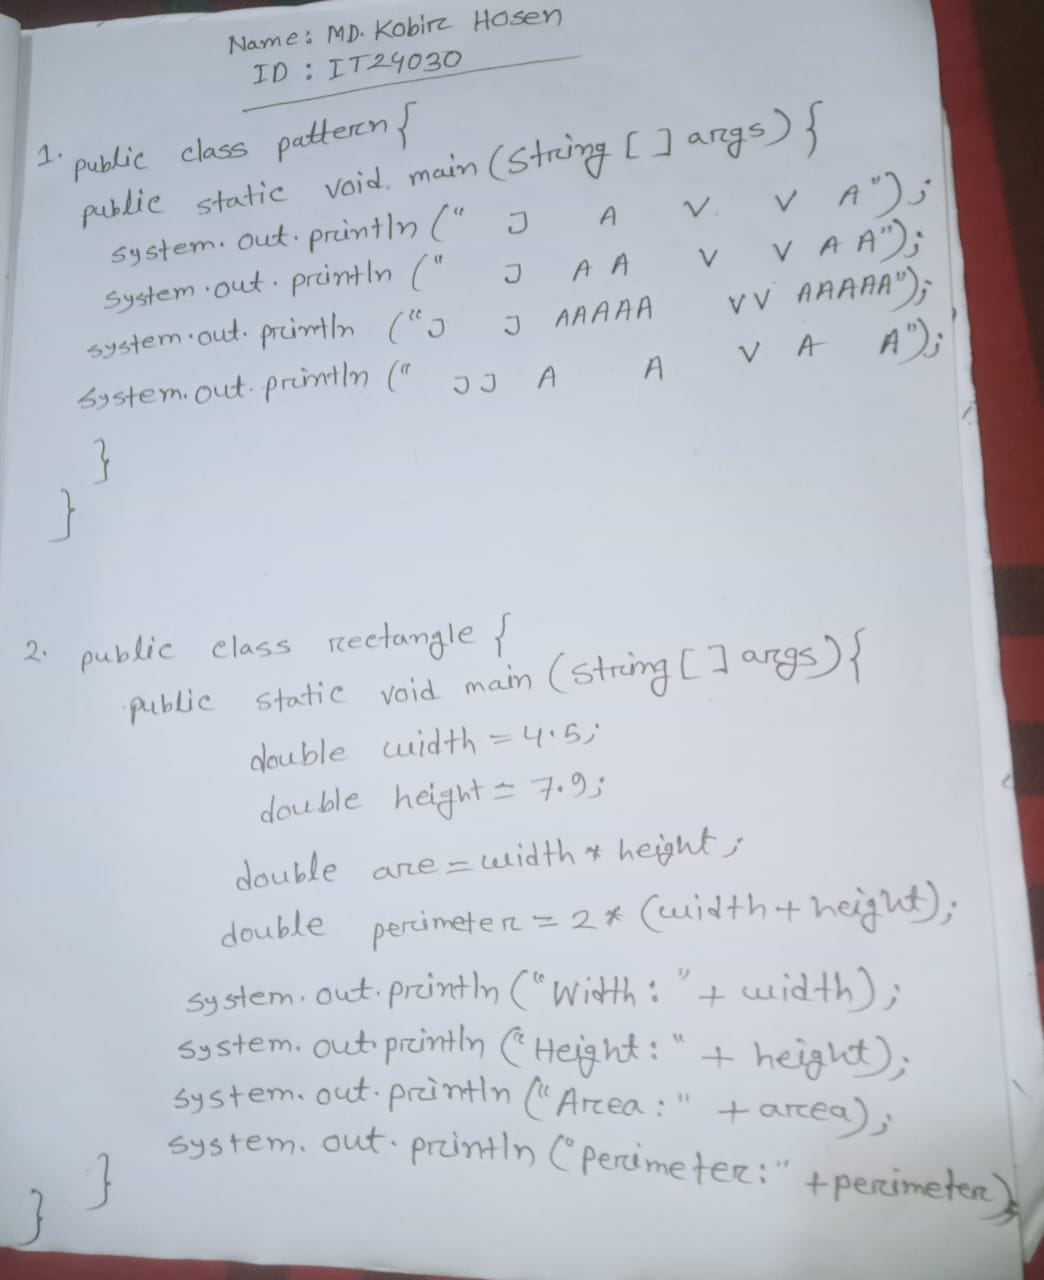 Name: MD. Kobir Hosen
ID : IT24030
1. public class pattern {
public static void main (String [ ] args) {
system. out. println (" J A V V A");
system. out. println (" J A A V V A A");
system. out. println ("J J AAAAA VV AAAAA");
system. out. println (" JJ A A V A A");
}
}
2. public class rectangle {
public static void main (string [ ] args) {
double width = 4.5;
double height = 7.9;
double are = width * height;
double perimeter = 2 * (width + height);
system. out. println ("Width : " + width);
system. out. println ("Height : " + height);
system. out. println ("Area : " + area);
system. out. println ("perimeter: " + perimeter);
}
}